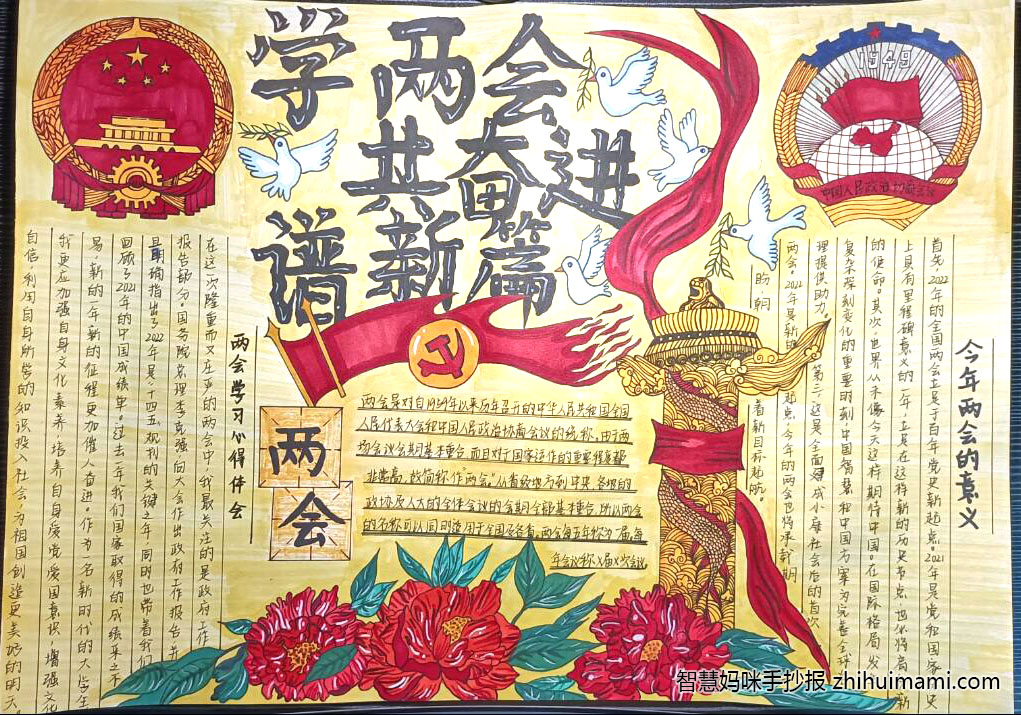 学两会
共奋进
谱新篇
1949
中国人民政治协商会议
两会学习心得体会
在这一次隆重而又庄严的两会中，我最关注的是政府工作
报告部分。国务院总理李克强向大会作出政府工作报告并
明确指出了2022年是十四五规划的关键之年，同时也带着我们
回顾了2021年的中国成绩单。过去一年我们国家取得的成绩来之不
易，新的一年新的征程更加催人奋进。作为一名新时代的大学生
我更应加强自身文化素养，培养自身爱党爱国意识，增强文化
自信，利用自身所学的知识投入社会，为祖国创造更美好的明天。
两会
两会是对自1959年以来历年召开的中华人民共和国全国
人民代表大会和中国人民政治协商会议的统称。由于两
场会议会期基本重合，而且对于国家运作的重要程度都
非常高，故简称作“两会”。从省级地方到中央，各地的
政协及人大的全体会议的会期全都基本重合，所以两会
的名称可以同时适用于全国及各省。两会每五年称为一届，每
年会议称X届X次会议
今年两会的意义
首先，2022年的全国两会立足于百年党史新起点。2021年是党和国家历史
上具有里程碑意义的一年，立足在这样新的历史节点，也必将肩负新
的使命。其次，世界从未像今天这样期待中国。在国际格局发
复杂深刻变化的重要时刻，中国智慧和中国方案为完善全球
理提供助力。第三，这是全面建成小康社会后的首次
两会。2022年是新的起点，今年的两会也将承载期
盼，朝着新目标起航。
智慧妈咪手抄报 zhihuimami.com